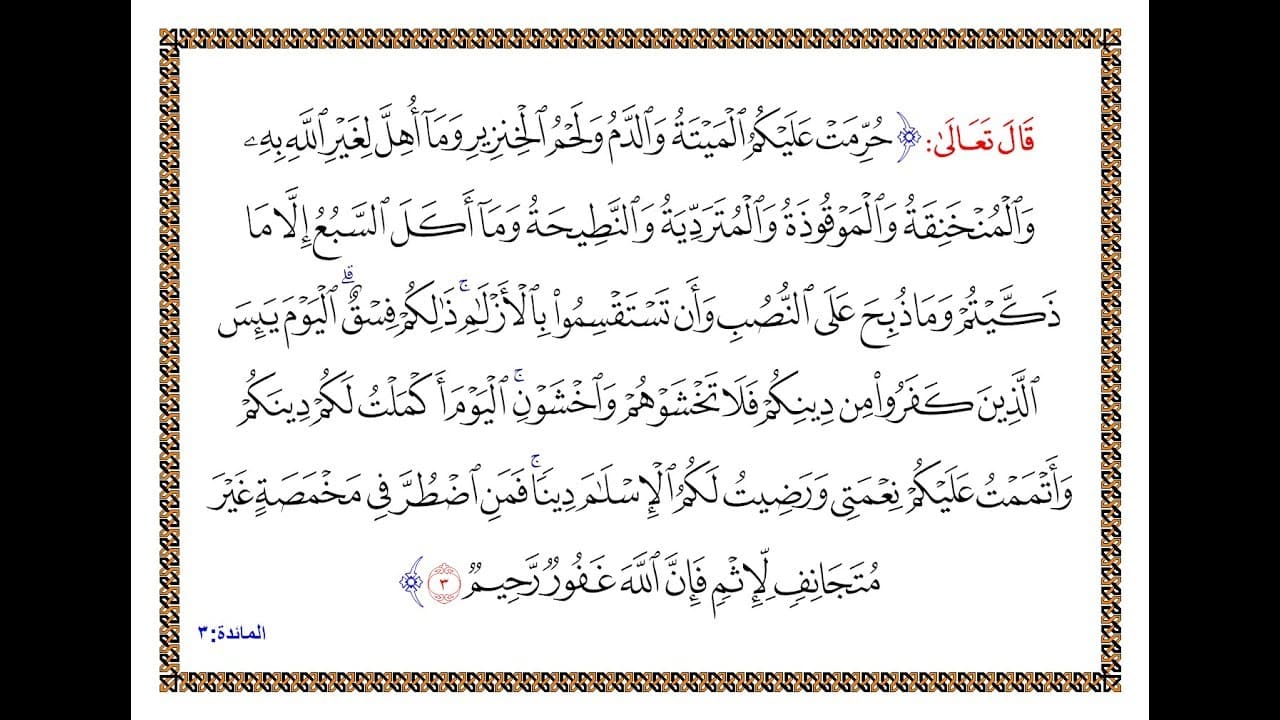 قَالَ تَعَالَىٰ: ﴿حُرِّمَتْ عَلَيْكُمُ ٱلْمَيْتَةُ وَٱلدَّمُ وَلَحْمُ ٱلْخِنزِيرِ وَمَآ أُهِلَّ لِغَيْرِ ٱللَّهِ بِهِۦ
وَٱلْمُنْخَنِقَةُ وَٱلْمَوْقُوذَةُ وَٱلْمُتَرَدِّيَةُ وَٱلنَّطِيحَةُ وَمَآ أَكَلَ ٱلسَّبُعُ إِلَّا مَا
ذَكَّيْتُمْ وَمَا ذُبِحَ عَلَى ٱلنُّصُبِ وَأَن تَسْتَقْسِمُوا۟ بِٱلْأَزْلَٰمِ ۚ ذَٰلِكُمْ فِسْقٌ ۗ ٱلْيَوْمَ يَئِسَ
ٱلَّذِينَ كَفَرُوا۟ مِن دِينِكُمْ فَلَا تَخْشَوْهُمْ وَٱخْشَوْنِ ۚ ٱلْيَوْمَ أَكْمَلْتُ لَكُمْ دِينَكُمْ
وَأَتْمَمْتُ عَلَيْكُمْ نِعْمَتِى وَرَضِيتُ لَكُمُ ٱلْإِسْلَٰمَ دِينًا ۚ فَمَنِ ٱضْطُرَّ فِى مَخْمَصَةٍ غَيْرَ
مُتَجَانِفٍ لِّإِثْمٍ فَإِنَّ ٱللَّهَ غَفُورٌ رَّحِيمٌ ٣﴾
المائدة:٣